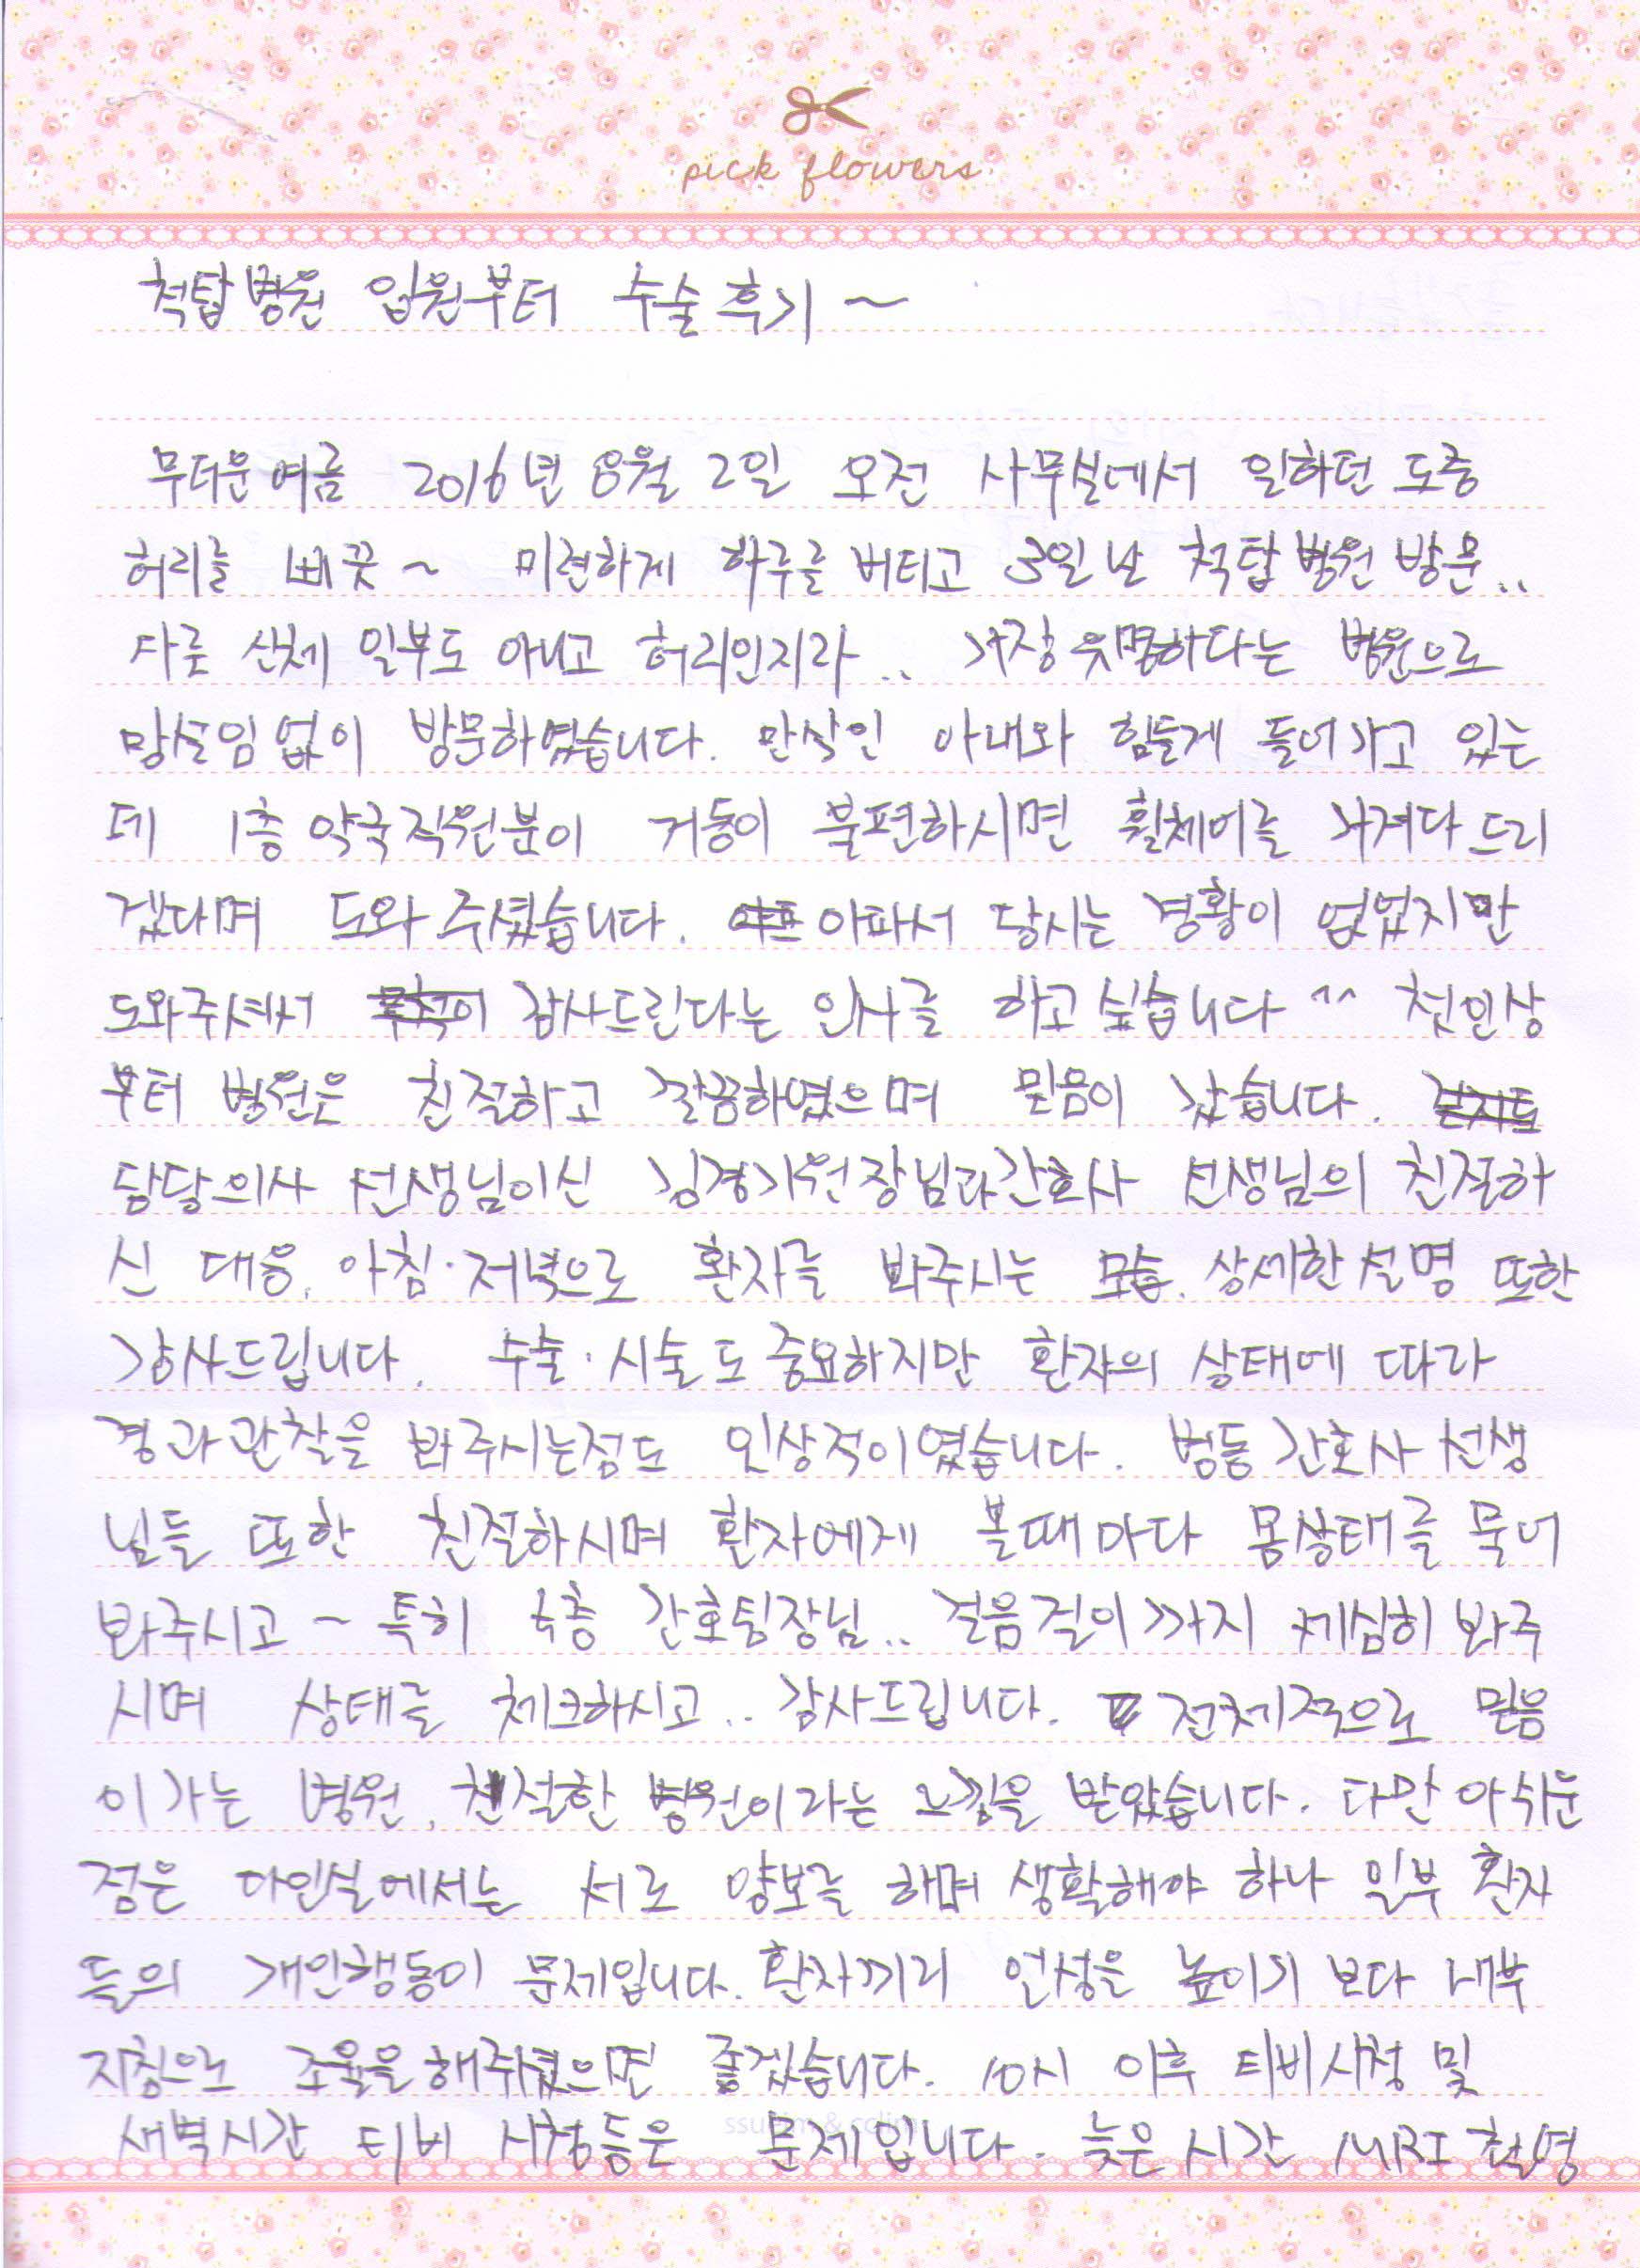 pick flowers
척탑병원 입원부터 수술후기 ~
무더운여름 2016년 8월 2일 오전 사무실에서 일하던 도중
허리를 삐끗~ 미련하게 하루를 버티고 3일 난 척탑병원 방문..
다른 신체 일부도 아니고 허리인지라.. 가장 유명하다는 병원으로
망설임없이 방문하였습니다. 만삭인 아내와 힘들게 들어가고 있는
데 1층 약국직원분이 거동이 불편하시면 휠체어를 가져다드리
겠다며 도와 주셨습니다. 아파서 당시는 경황이 없었지만
도와주셔서 감사드린다는 인사를 하고 싶습니다 ^^ 첫인상
부터 병원은 친절하고 깔끔하였으며 믿음이 갔습니다.
담당의사 선생님이신 김경기원장님과간호사 선생님의 친절하
신 대응, 아침·저녁으로 환자를 봐주시는 모습. 상세한설명 또한
감사드립니다. 수술·시술도 중요하지만 환자의 상태에 따라
경과관찰을 봐주시는점도 인상적이였습니다. 병동간호사 선생
님들 또한 친절하시며 환자에게 볼때마다 몸상태를 묵어
봐주시고 ~ 특히 층 간호팀장님.. 걸음걸이까지 세심히 봐주
시며 상태를 체크하시고.. 감사드립니다. 전체적으로 믿음
이가는 병원, 친절한 병원이라는 느낌을 받았습니다. 다만 아쉬운
점은 다인실에서는 서로 양보를 해며 생활해야 하나 일부 환자
들의 개인행동이 문제입니다. 환자끼리 언성을 높이기 보다 내부
지침으로 조율을해주셨으면 좋겠습니다. 10시 이후 티비시청 및
새벽시간 티비 시청등은 문제입니다. 늦은시간 MRI 촬영